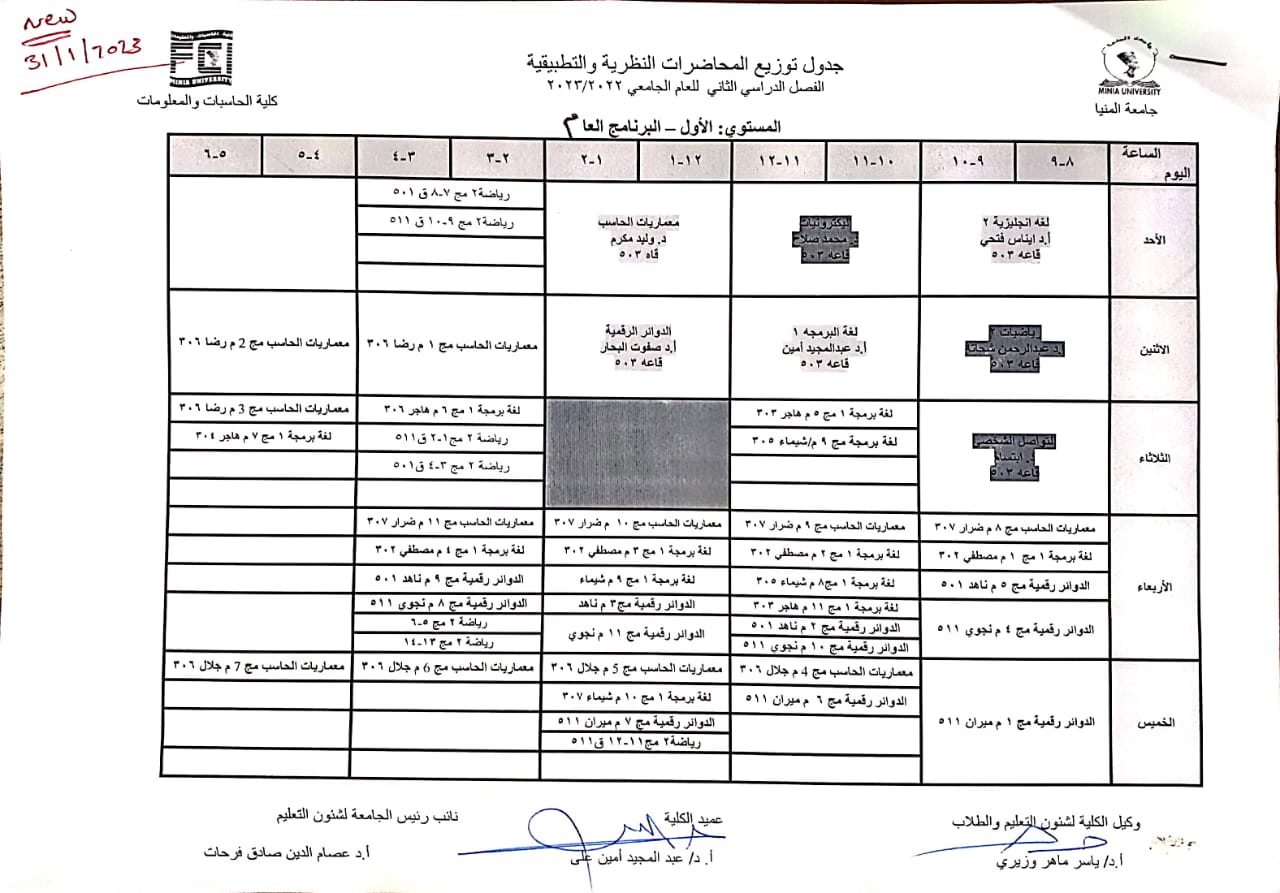 New
31/1/2023
FCI
MINIA UNIVERSITY
كلية الحاسبات والمعلومات
جدول توزيع المحاضرات النظرية والتطبيقية
الفصل الدراسي الثاني للعام الجامعي ٢٠٢٣/٢٠٢٢
MINIA UNIVERSITY
جامعة المنيا
المستوي: الأول – البرنامج العام
الساعة
اليوم
٨-٩
٩-١٠
١٠-١١
١١-١٢
١٢-١
١-٢
٢-٣
٣-٤
٤-٥
٥-٦
الأحد
لغه انجليزية ٢
أ.د ايناس فتحي
قاعه ٥٠٣
إليكترونيات
د. محمد صلاح
قاعه ٥٠٣
معماريات الحاسب
د. وليد مكرم
قاه ٥٠٣
رياضة٢ مج ٧-٨ ق ٥٠١
رياضة٢ مج ٩-١٠ ق ٥١١
الاثنين
رياضيات ٢
أ.د عبدالرحمن شحاتة
قاعه ٥٠٣
لغة البرمجه ١
أ.د عبدالمجيد أمين
قاعه ٥٠٣
الدوائر الرقمية
أ.د صفوت البحار
قاعه ٥٠٣
معماريات الحاسب مج ١ م رضا ٣٠٦
معماريات الحاسب مج 2 م رضا ٣٠٦
الثلاثاء
التواصل الشخصي
د. ابتسام
قاعه ٥٠٣
لغة برمجة ١ مج ٥ م هاجر ٣٠٣
لغة برمجة مج ٩ م/شيماء ٣٠٥
لغة برمجة ١ مج ٦ م هاجر ٣٠٦
رياضة ٢ مج١-٢ ق٥١١
رياضة ٢ مج ٣-٤ ق٥٠١
معماريات الحاسب مج 3 م رضا ٣٠٦
لغة برمجة ١ مج ٧ م هاجر ٣٠٤
الأربعاء
معماريات الحاسب مج ٨ م ضرار ٣٠٧
معماريات الحاسب مج ٩ م ضرار ٣٠٧
معماريات الحاسب مج ١٠ م ضرار ٣٠٧
معماريات الحاسب مج ١١ م ضرار ٣٠٧
لغة برمجة ١ مج ١ م مصطفي ٣٠٢
لغة برمجة ١ مج ٢ م مصطفي ٣٠٢
لغة برمجة ١ مج ٣ م مصطفي ٣٠٢
لغة برمجة ١ مج ٤ م مصطفي ٣٠٢
الدوائر رقمية مج ٥ م ناهد ٥٠١
لغة برمجة ١ مج٨ م شيماء ٣٠٥
لغة برمجة ١ مج ٩ م شيماء
الدوائر رقمية مج ٩ م ناهد ٥٠١
الدوائر رقمية مج ٤ م نجوي ٥١١
لغة برمجة ١ مج ١١ م هاجر ٣٠٣
الدوائر رقمية مج٣ م ناهد
الدوائر رقمية مج ٨ م نجوي ٥١١
الدوائر رقمية مج ٢ م ناهد ٥٠١
الدوائر رقمية مج ١١ م نجوي
رياضة ٢ مج ٥-٦
الدوائر رقمية مج ١٠ م نجوي ٥١١
رياضة ٢ مج ١٣-١٤
الخميس
الدوائر رقمية مج ١ م ميران ٥١١
معماريات الحاسب مج 4 م جلال ٣٠٦
معماريات الحاسب مج 5 م جلال ٣٠٦
معماريات الحاسب مج 6 م جلال ٣٠٦
معماريات الحاسب مج 7 م جلال ٣٠٦
الدوائر رقمية مج ٦ م ميران ٥١١
لغة برمجة ١ مج ١٠ م شيماء ٣٠٧
الدوائر رقمية مج ٧ م ميران ٥١١
رياضة٢ مج١١-١٢ ق٥١١
وكيل الكلية لشئون التعليم والطلاب
أ.د/ ياسر ماهر وزيري
عميد الكلية
أ.د/ عبد المجيد أمين على
نائب رئيس الجامعة لشئون التعليم
أ.د عصام الدين صادق فرحات